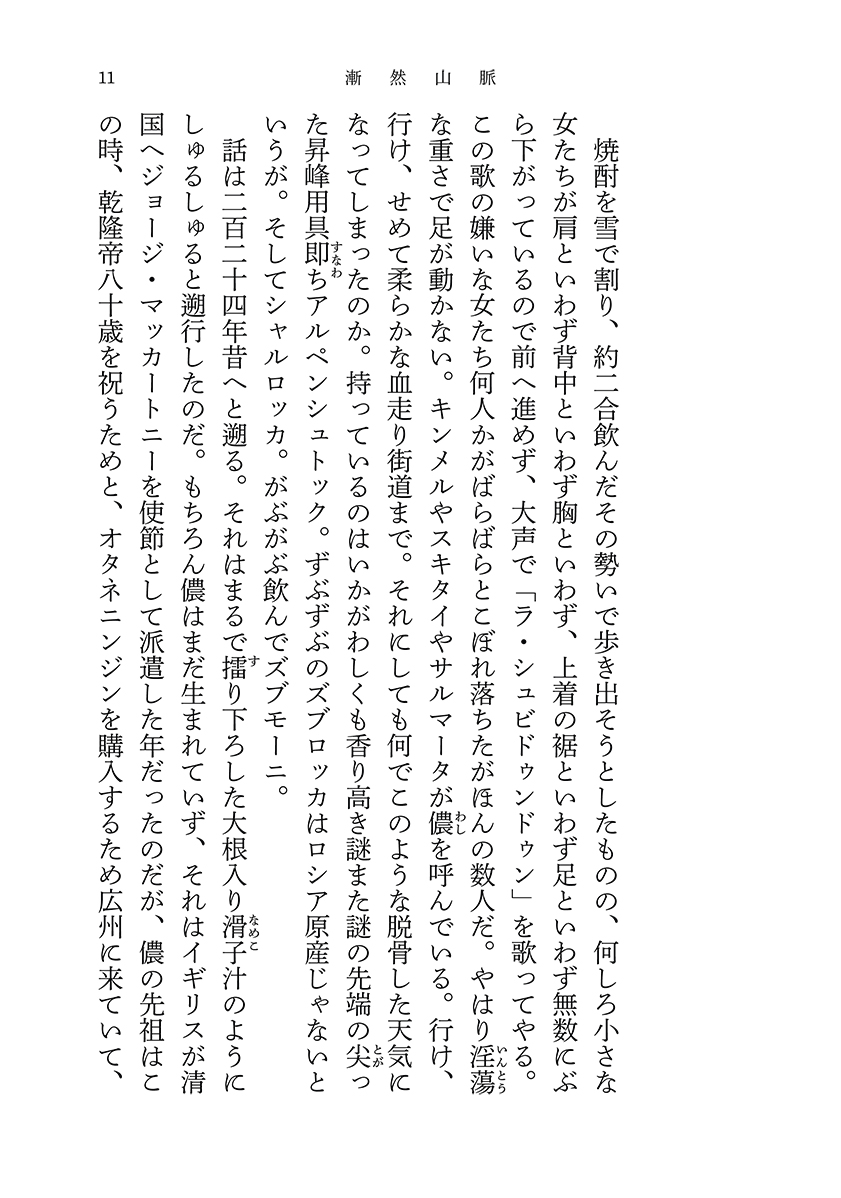 11
漸然山脈
焼酎を雪で割り、約二合飲んだその勢いで歩き出そうとしたものの、何しろ小さな
女たちが肩といわず背中といわず胸といわず、上着の裾といわず足といわず無数にぶ
ら下がっているので前へ進めず、大声で「ラ・シュビドゥンドゥン」を歌ってやる。
この歌の嫌いな女たち何人かがばらばらとこぼれ落ちたがほんの数人だ。やはり淫蕩
な重さで足が動かない。キンメルやスキタイやサルマータが儂を呼んでいる。行け、
行け、せめて柔らかな血走り街道まで。それにしても何でこのような脱骨した天気に
なってしまったのか。持っているのはいかがわしくも香り高き謎また謎の先端の尖っ
た昇峰用具即ちアルペンシュトック。ずぶずぶのズブロッカはロシア原産じゃないと
いうが。そしてシャルロッカ。がぶがぶ飲んでズブモーニ。
話は二百二十四年昔へと遡る。それはまるで擂り下ろした大根入り滑子汁のように
しゅるしゅると遡行したのだ。もちろん儂はまだ生まれていず、それはイギリスが清
国へジョージ・マッカートニーを使節として派遣した年だったのだが、儂の先祖はこ
の時、乾隆帝八十歳を祝うためと、オタネニンジンを購入するため広州に来ていて、